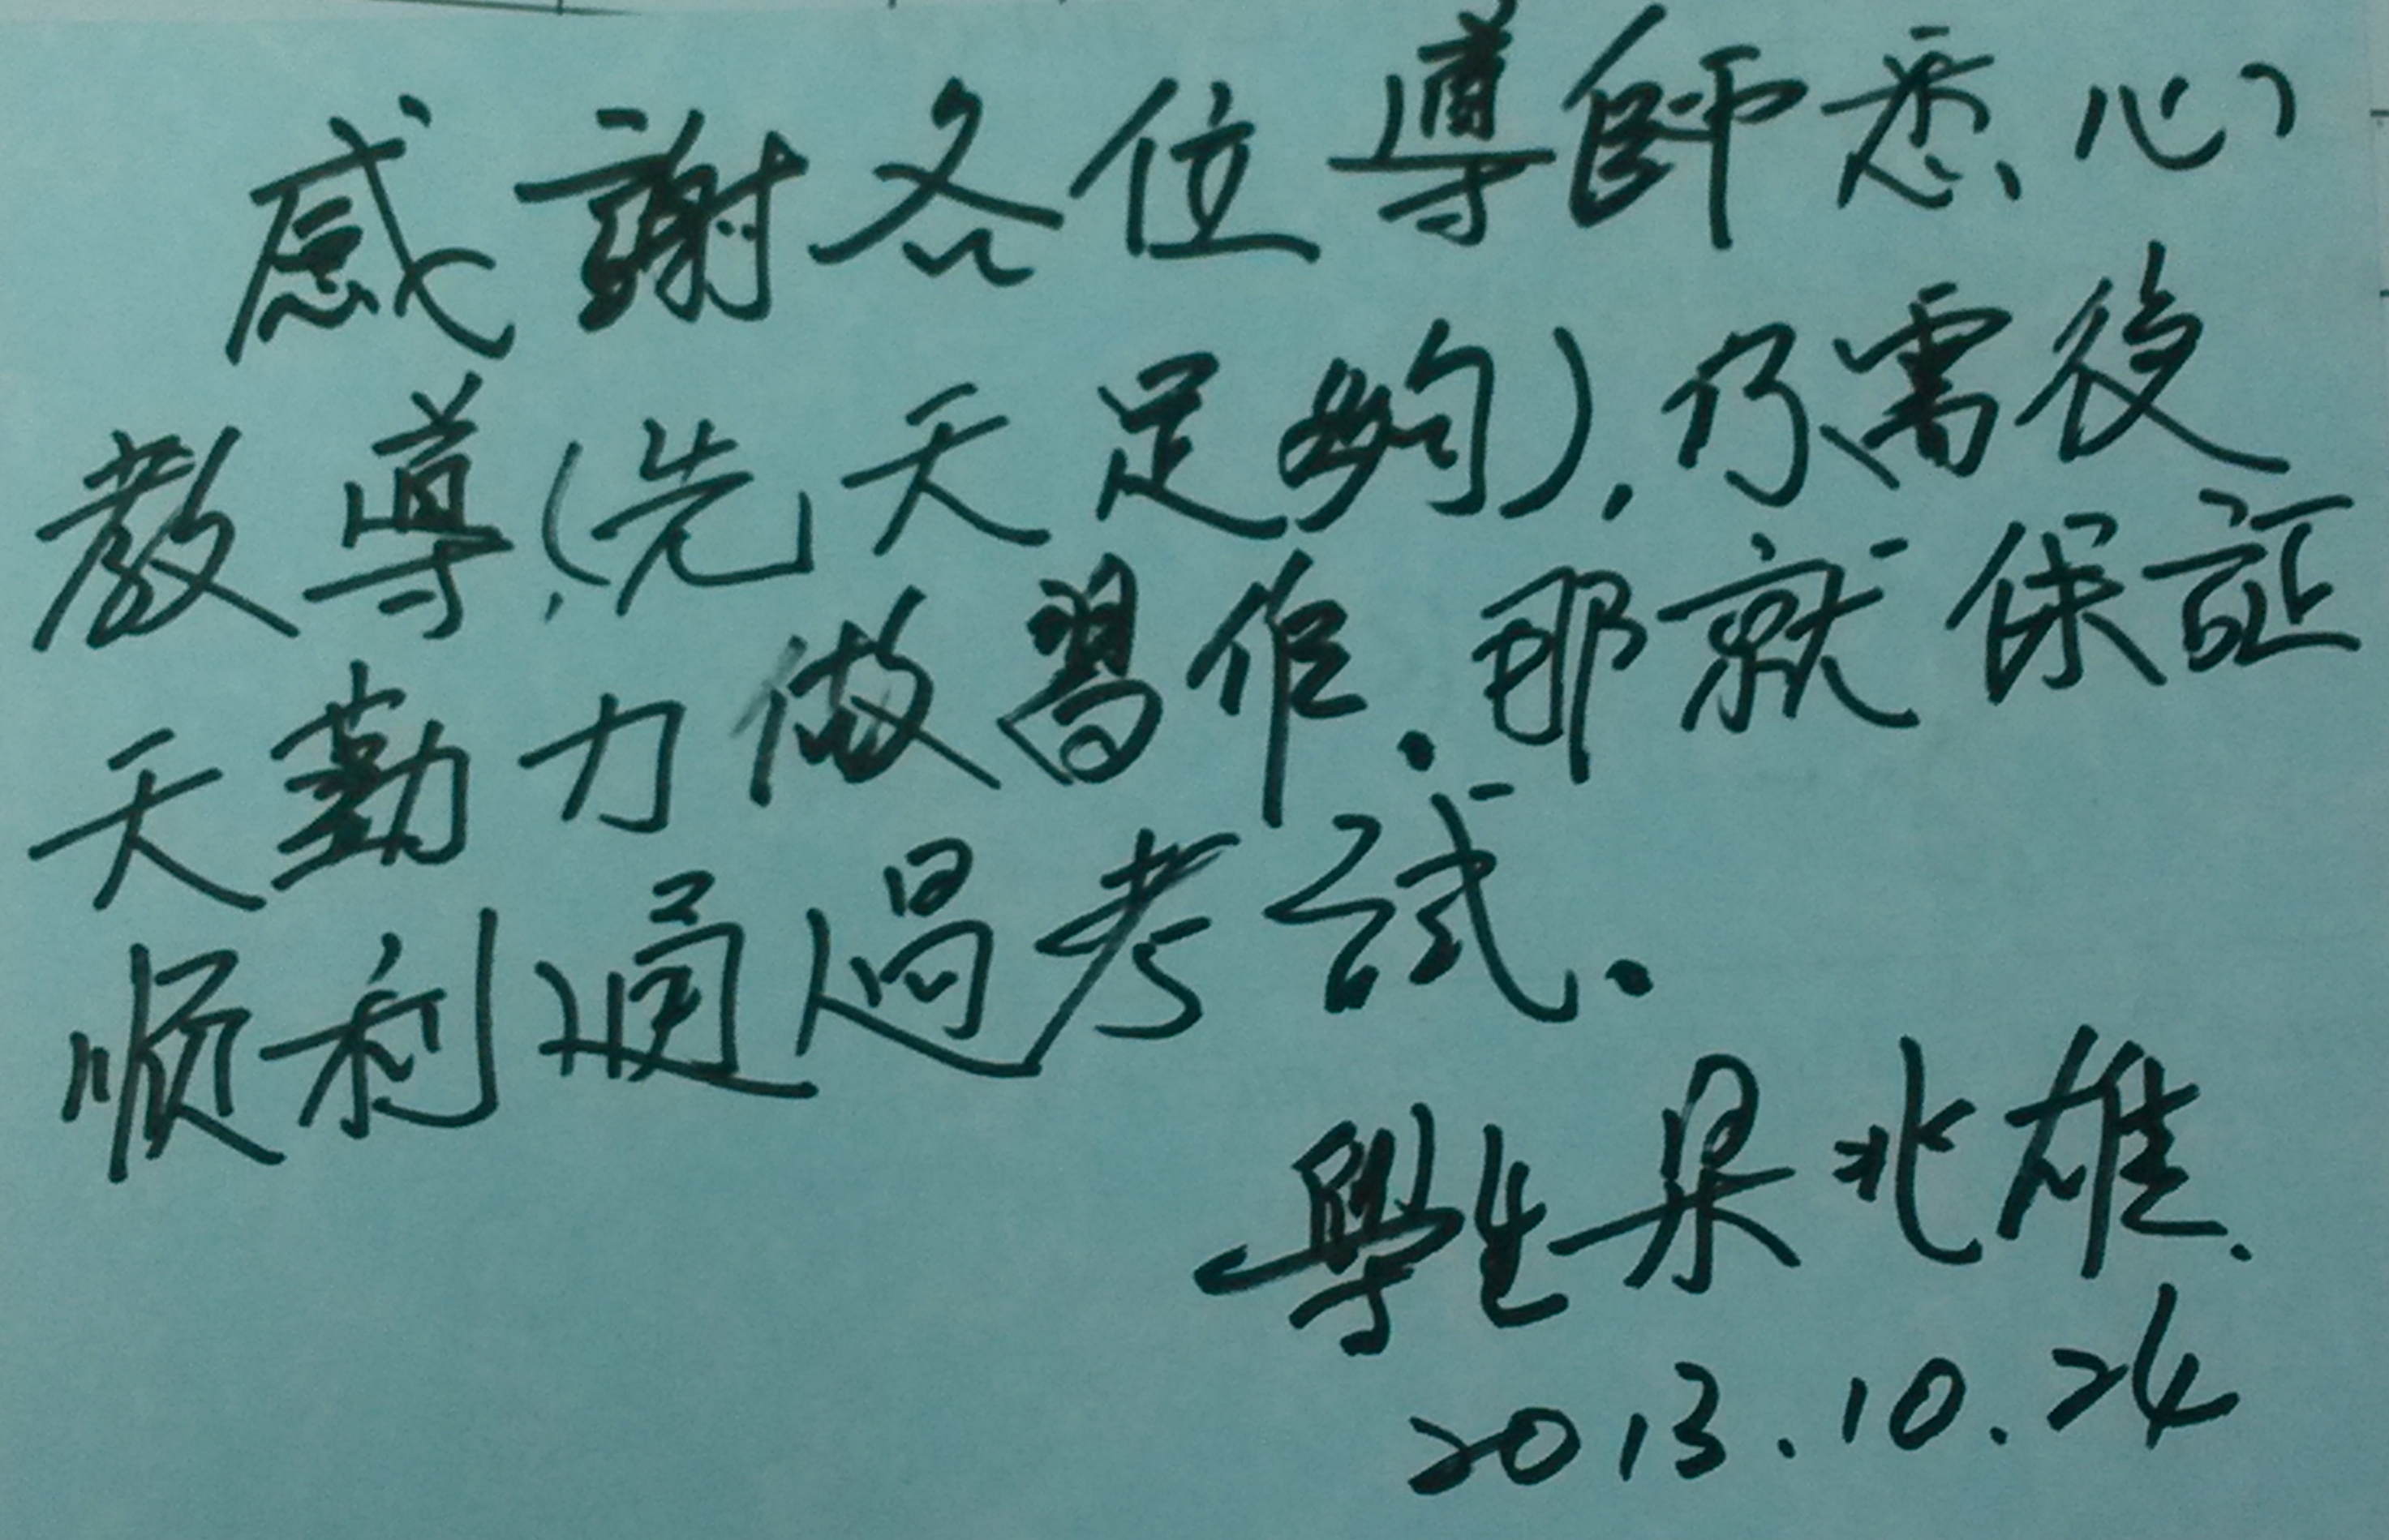 感謝各位導師悉心
教導,(先天足夠),仍需後
天勤力做習作.那就保証
顺利通過考試.
學生梁兆雄.
2013.10.24